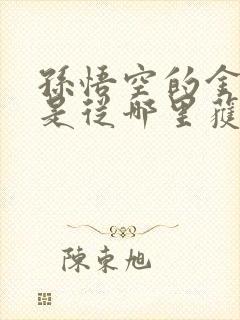 孫悟空的金
是從哪里獲
陳束旭